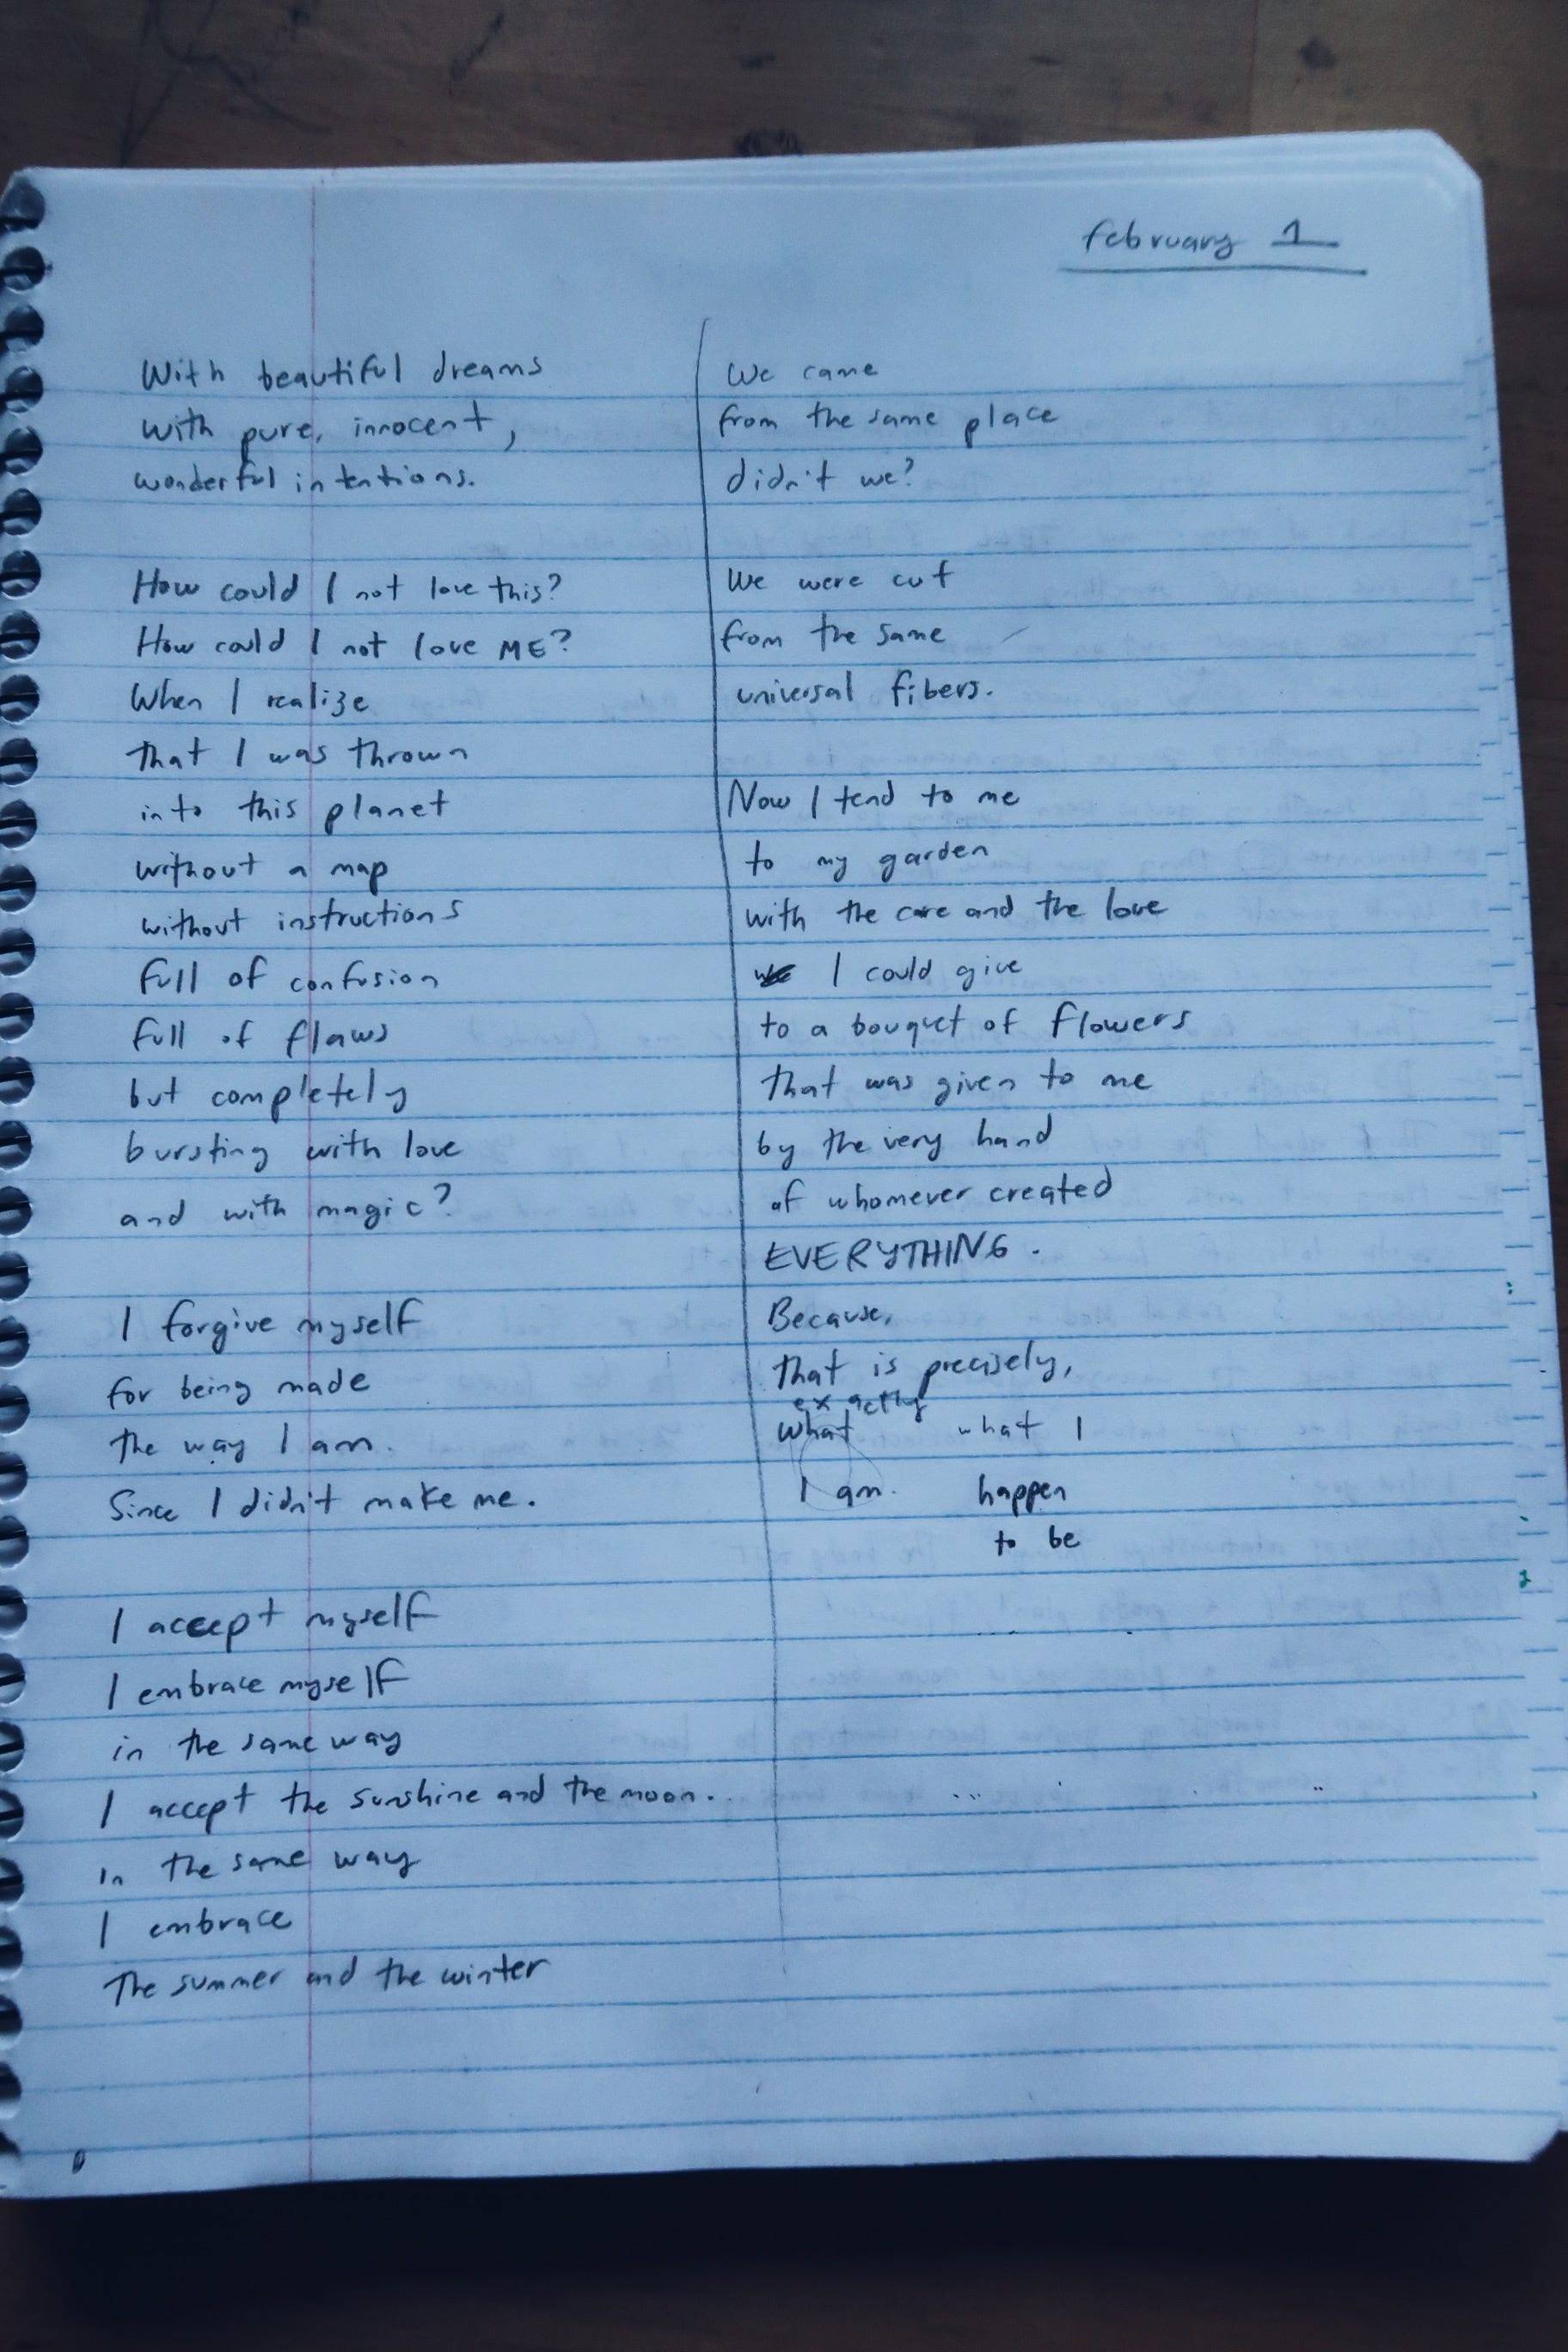 february 1
With beautiful dreams
with pure, innocent,
wonderful intentions.
How could I not love this?
How could I not love ME?
When I realize
that I was thrown
into this planet
without a map
without instructions
full of confusion
full of flaws
but completely
bursting with love
and with magic?
I forgive myself
for being made
the way I am.
Since I didn't make me.
I accept myself
I embrace myself
in the same way
I accept the sunshine and the moon.
in the same way
I embrace
The summer and the winter
We came
from the same place
didn't we?
We were cut
from the same
universal fibers.
Now I tend to me
to my garden
with the care and the love
we I could give
to a bouquet of flowers
that was given to me
by the very hand
of whomever created
EVERYTHING.
Because,
that is precisely,
exactly
what
I am.
what I
happen
to be